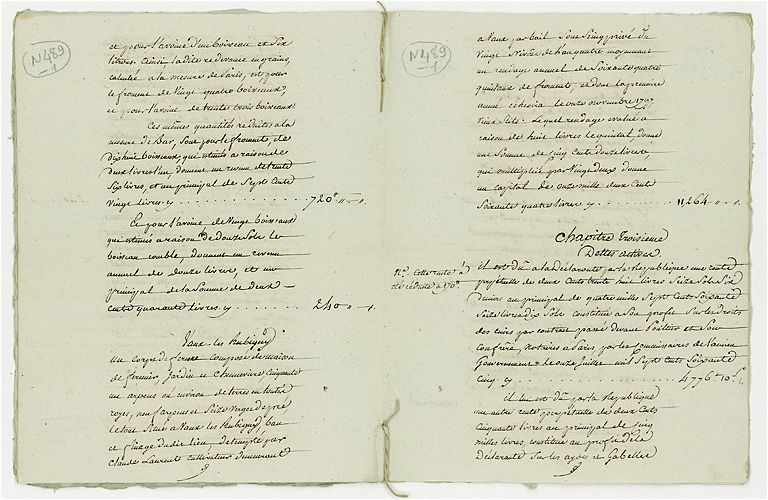 N 489
1
et pour l'avoine d'un boisseau et Six
litres. Ainsi ladite redevance en grains,
calculée a la mesure de Paris, est pour
le froment de Vingt quatre boisseaux,
et pour l'avoine de trente trois boisseaux
Ces mêmes quantités reduites a la
mesure de bar, Sont pour le froment, de
dix huit boisseaux qui estimés a raison de
deux livres l'un, donnent un revenu de trente
Six livres, et un principal de Sept Cents
Vingt livres. cy . . . . . . . . . . 720
Et pour l'avoine de Vingt boisseaux
qui estimés a raison de douze Sols le
boisseau comble, donnent un revenu
annuel de douze livres, et un
principal de la Somme de deux
Cents quarante livres. cy . . . . . . 240
Vaux les Rubigny
Un corps de ferme composé de maison
de fermier Jardin et Chenevière, Cinquante
un arpens ou environ de terres en toutes
royes, neuf arpens et Seize Verges de pré,
le tout Situé a Vaux les Rubigny, ban
et finage dudit lieu, detenu par
Claude Laurent cultivateur demeurant
N 489
1
a Vaux par bail Sous Seing privé du
Vingt Nivôse de l'an quatre moyennant
un rendage annuel de Soixante quatre
quintaux de froment, et dont la première
année échera le onze novembre 1797
Vieux Stile. Lequel rendage evalué a
raison de huit livres le quintal donne
une Somme de cinq Cents douze livres,
qui multipliée par Vingt deux donne
un capital de onze mille deux Cents
Soixante quatre livres cy . . . . . . . 11,264
Chapitre Troisieme
Dettes actives
Nta. Cette rente a
été réduite a 170
Il est dû a la déclarante par la Republique une rente
perpétuelle de deux Cents trente huit livres Seize Sols Six
deniers au principal de quatre mille Sept Cents Soixante
Seize livres dix Sols constituée a Son profit Sur les droits
des cuirs par contrat passé devant et Son
Confrere, Notaires a Paris, par les Commissaires de l'ancien
Gouvernement le onze Juillet mil Sept Cents Soixante
Cinq. cy . . . . . . . . . . . . 4776 10 s
Il lui est dû par la Republique
une autre rente perpétuelle de deux Cents
Cinquante livres au principal de cinq
mille livres, constituée au profit de la
déclarante Sur les aydes et Gabelles